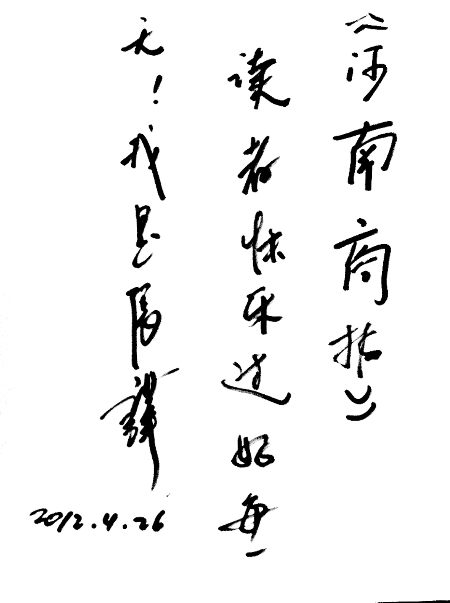 《河南商报》
读者快乐过好每一
天!我是張譯
2012.4.26